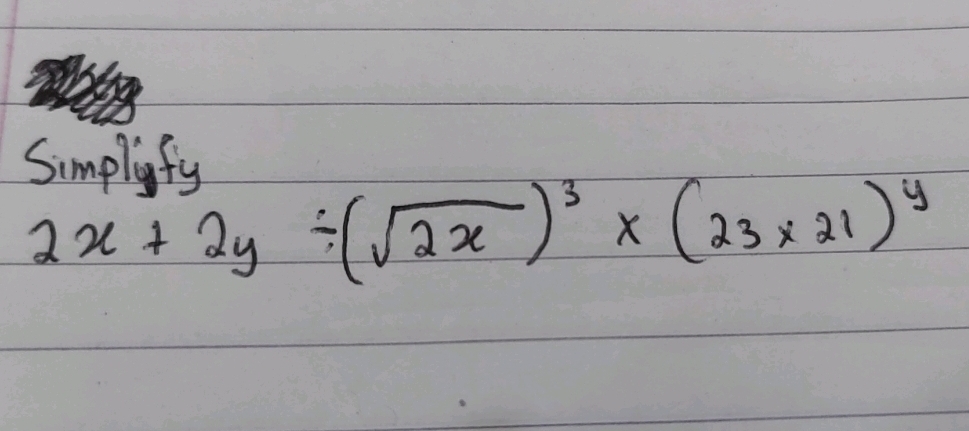 Simplyfy
2x + 2y ÷ (√2x)³ × (23 × 21)ʸ